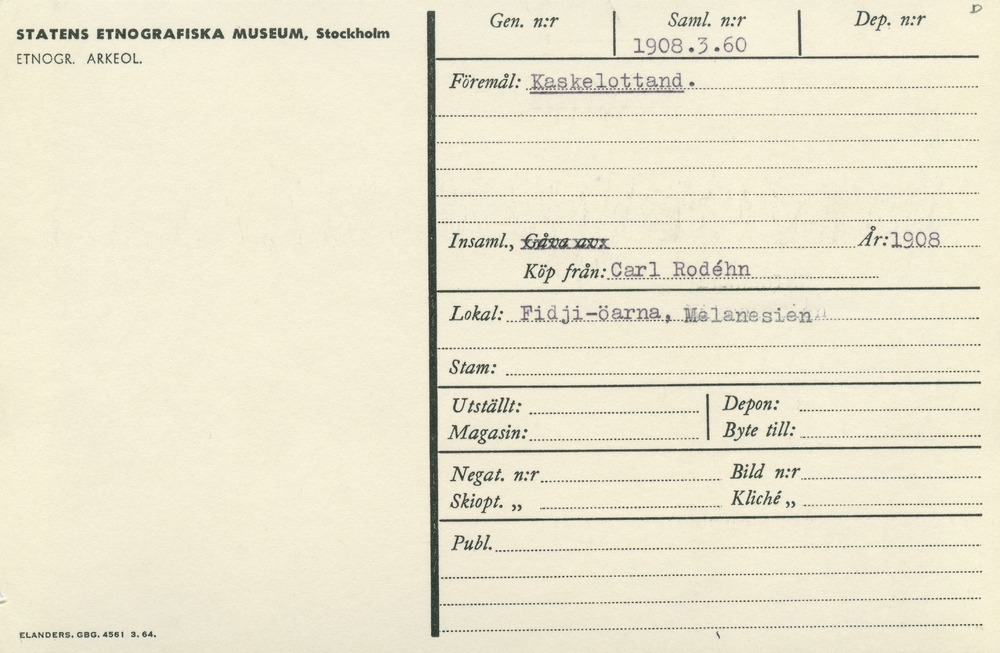 STATENS ETNOGRAFISKA MUSEUM, Stockholm
ETNOGR. ARKEOL.
Gen. n:r Saml. n:r Dep. n:r D
1908.3.60
Föremål: Kaskelottand.
Insaml., Gåva av: År: 1908
Köp från: Carl Rodéhn
Lokal: Fidji-öarna, Melanesien
Stam:
Utställt: Depon:
Magasin: Byte till:
Negat. n:r Bild n:r
Skiopt. „ Kliché „
Publ.
ELANDERS. GBG. 4561 3. 64.